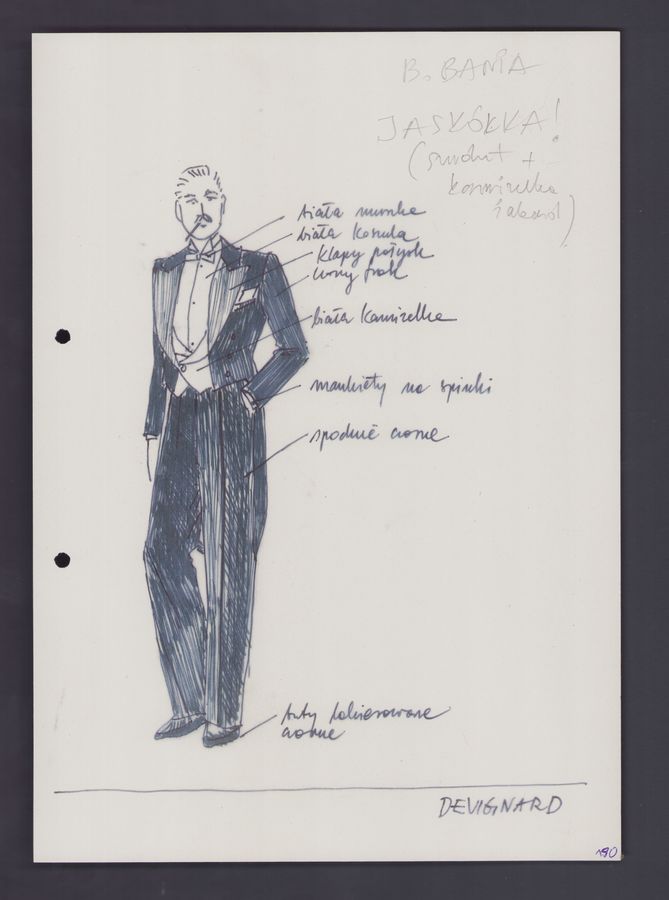 B. BANIA
JASKÓŁKA!
(surdut +
kamizelka
i alaxxl)
biała muszka
biała koszula
klapy połysk
czarny frak
biała kamizelka
mankiety na spinki
spodnie czarne
buty lakierowane
czarne
DEVIGNARD
190